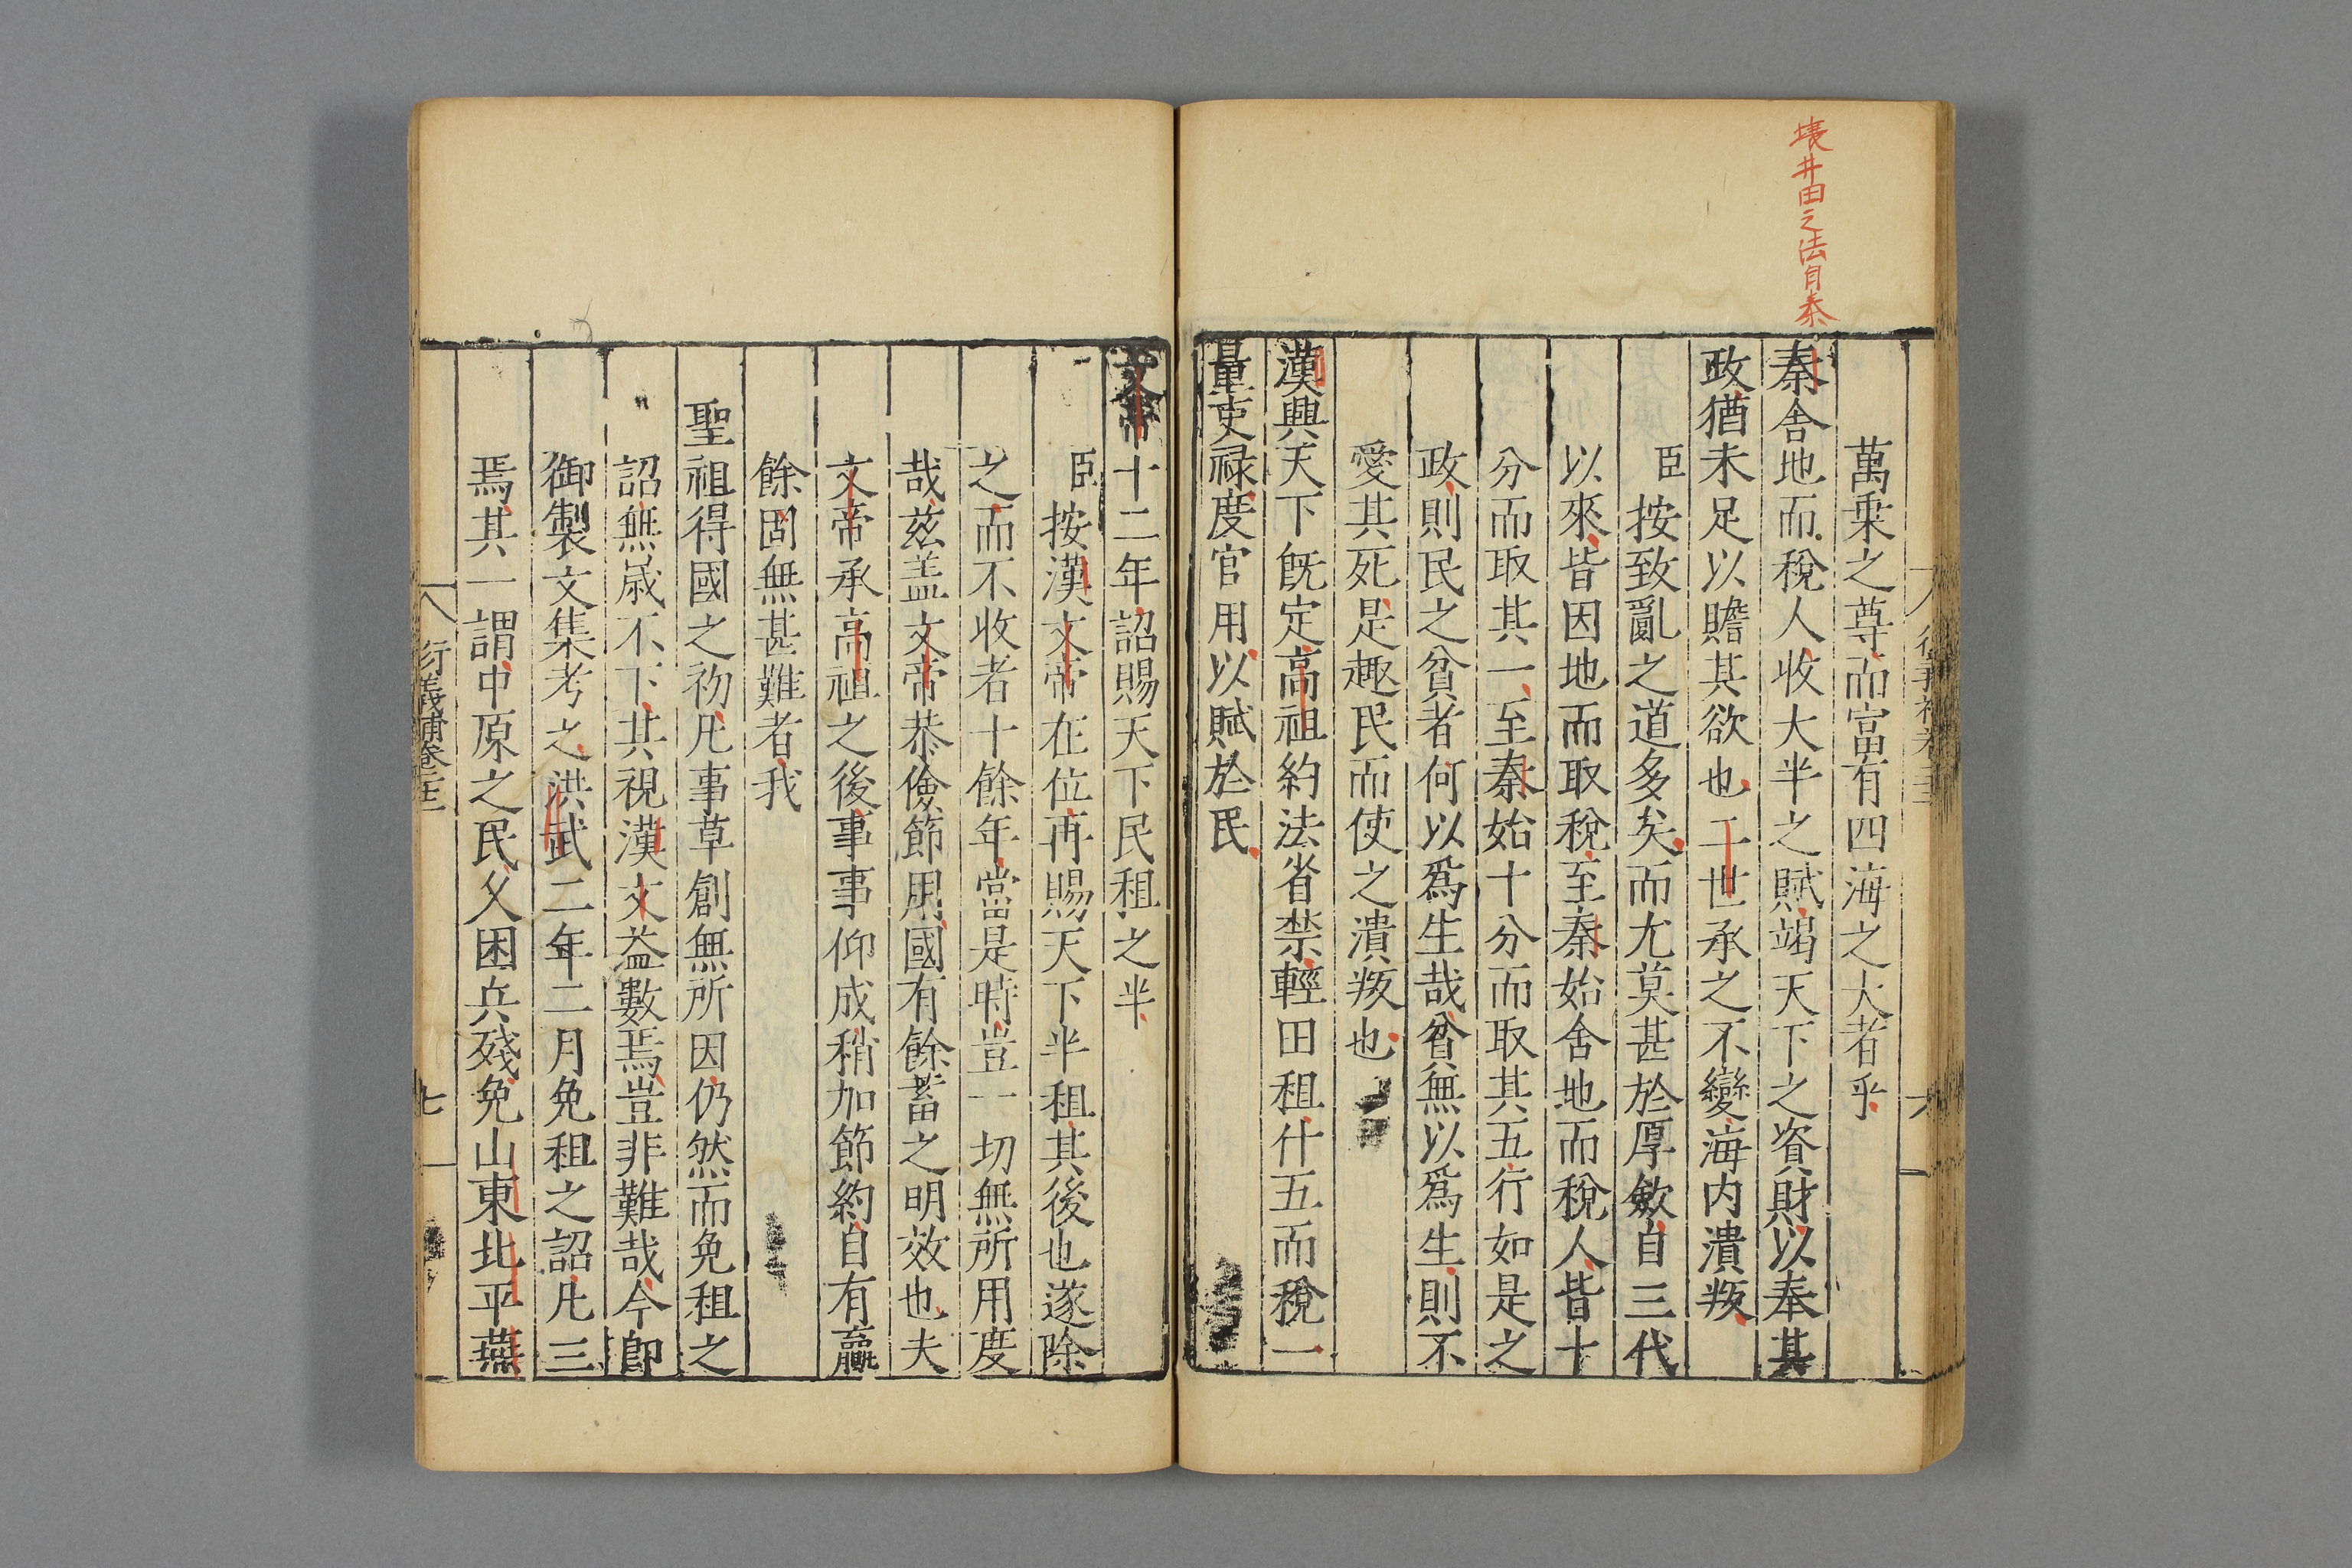 壊井田之法自秦
萬乗之尊而富有四海之大者乎
秦舎地而稅人收大半之賦竭天下之資財以奉其
政猶未足以贍其欲也二世承之不變海内潰叛
臣按致亂之道多矣而尤莫甚於厚歛自三代
以來皆因地而取稅至秦始舎地而稅人皆十
分而取其一至秦始十分而取其五行如是之
政則民之貧者何以爲生哉貧無以爲生則不
愛其死是趣民而使之潰叛也
漢興天下旣定高祖約法省禁輕田租什五而稅一
量吏禄度官用以賦於民
文帝十二年詔賜天下民租之半
臣按漢文帝在位再賜天下半租其後也遂除
之而不收者十餘年當是時豈一切無所用度
哉兹盖文帝恭儉節用國有餘蓄之明效也夫
文帝承高祖之後事事仰成稍加節約自有羸
餘固無甚難者我
聖祖得國之初凡事草創無所因仍然而免租之
詔無歲不下其視漢文益數焉豈非難哉今卽
御製文集考之洪武二年二月免租之詔凡三
焉其一謂中原之民久困兵殘免山東北平燕
衍義補卷二十二
七